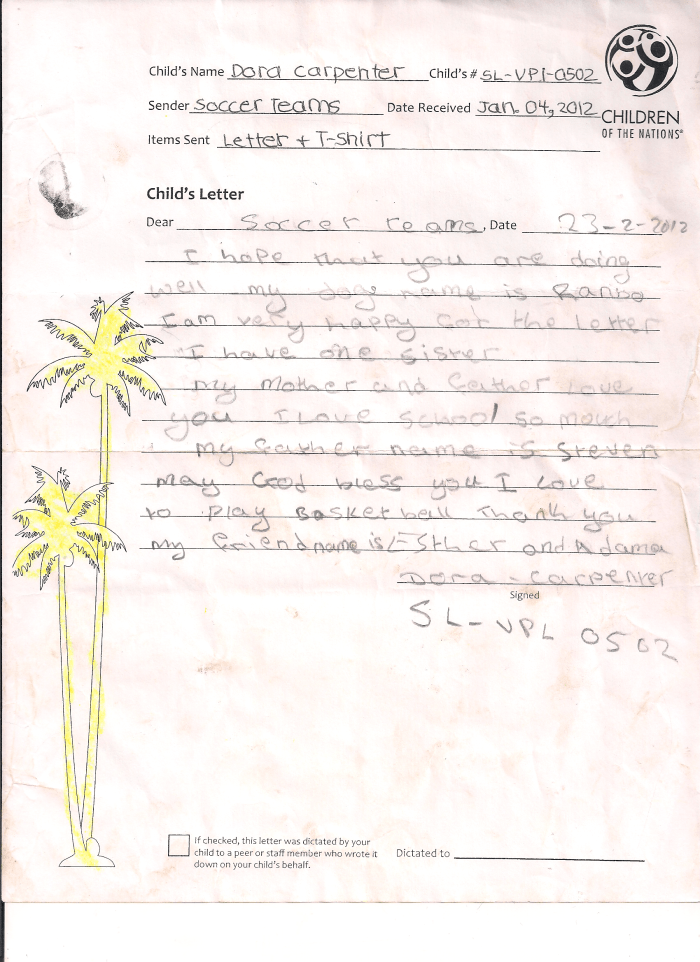 Child's Name Dora Carpenter Child's # SL-VPI-0502
Sender Soccer Teams Date Received Jan. 04, 2012
CHILDREN
OF THE NATIONS®
Items Sent Letter + T-Shirt
Child's Letter
Dear Soccer teams, Date 23-2-2012
I hope that you are doing
well my dogs name is Ranbo
I am very happy Got the letter
I have one sister
my mother and father love
you I Love school so mouth
my father name is Steven
may God bless you I Love
to play Basket ball Thank you
my friend name is Esther and Adama
Dora - Carpenter
Signed
SL-VPL 0502
If checked, this letter was dictated by your
child to a peer or staff member who wrote it
down on your child's behalf.
Dictated to